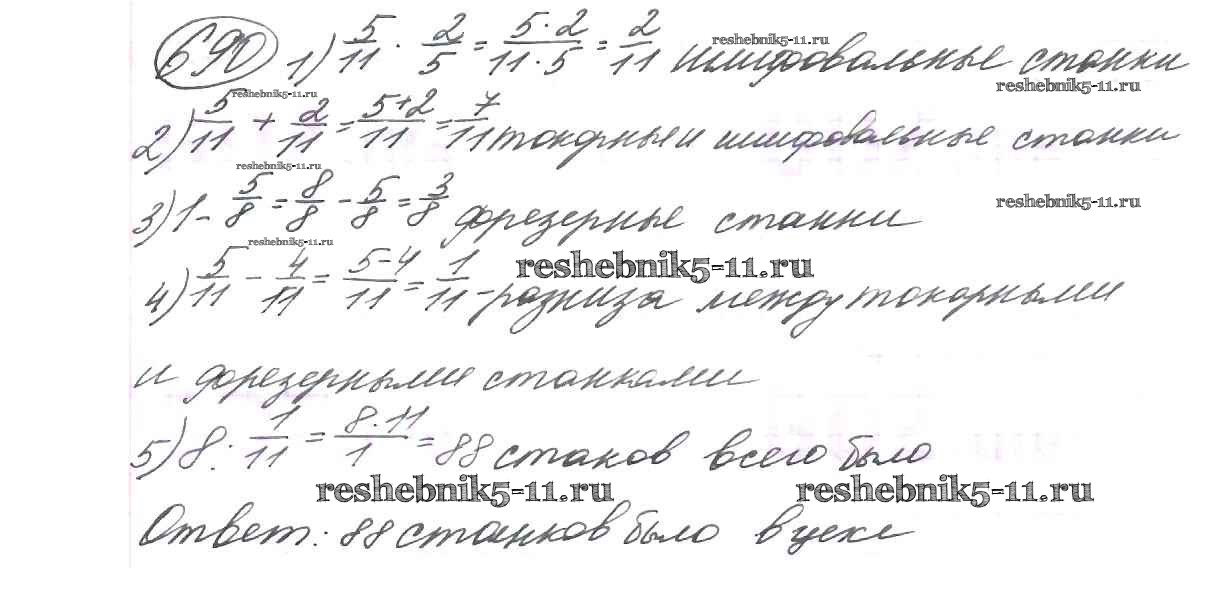 690 1) 5/11 · 2/5 = 5·2/11·5 = 2/11 шлифовальные станки
reshebnik5-11.ru
reshebnik5-11.ru
reshebnik5-11.ru
2) 5/11 + 2/11 = 5+2/11 = 7/11 токарные и шлифовальные станки
reshebnik5-11.ru
3) 1 - 5/8 = 8/8 - 5/8 = 3/8 фрезерные станки
reshebnik5-11.ru
reshebnik5-11.ru
reshebnik5-11.ru
4) 5/11 - 4/11 = 5-4/11 = 1/11 - разница между токарными
и фрезерными станками
5) 8 : 1/11 = 8·11/1 = 88 станков всего было
reshebnik5-11.ru
reshebnik5-11.ru
Ответ: 88 станков было в цехе